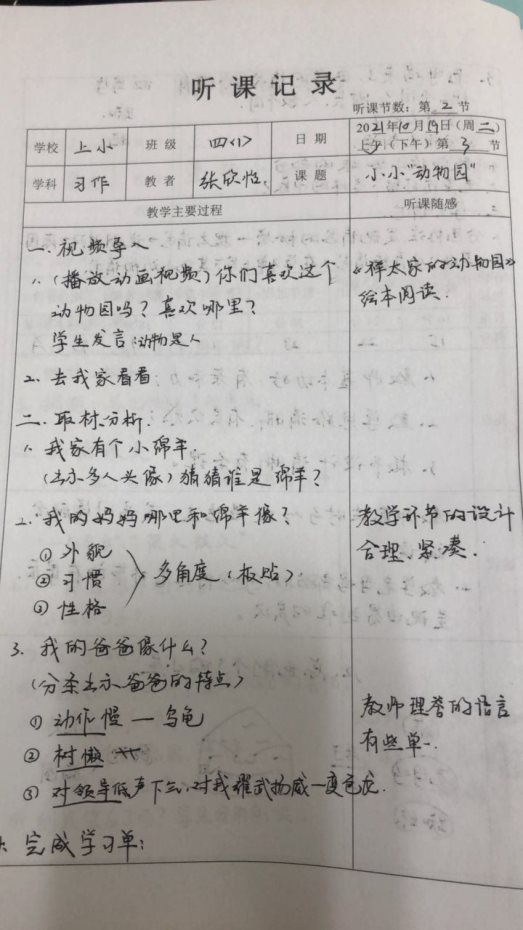 听课记录
听课节数：第 2 节
学校 上小 班级 四(1) 日期 2021年10月19日（周二）
上午（下午）第 3 节
学科 习作 教者 张欣怡 课题 小小“动物园”
教学主要过程 听课随感
一、视频导入
1、(播放动画视频) 你们喜欢这个 《祥太家的动物园》
动物园吗？喜欢哪里？ 绘本阅读.
学生发言:动物是人
2、去我家看看
二、取材分析.
1、我家有个小绵羊
(出示多人头像) 猜猜谁是绵羊？
2、我的妈妈哪里和绵羊像？ 教学环节的设计
① 外貌 合理、紧凑.
② 习惯 多角度（板贴）
③ 性格
3、我的爸爸像什么？
(分条出示爸爸的特点)
① 动作慢 — 乌龟 教师理答的语言
② 树懒 有些单一.
③ 对领导低声下气,对我耀武扬威—变色龙.
4、完成学习单: